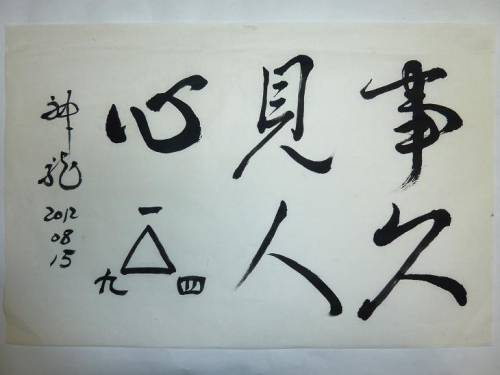 事久
見人
心
一
九 四
神龍
2012
08
15